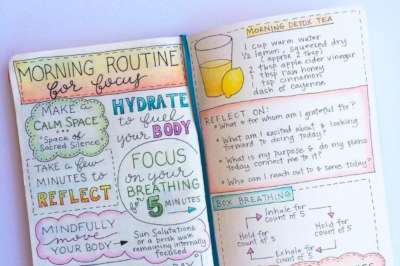 MORNING ROUTINE
for focus
MAKE a
CALM SPACE
Space of
Sacred Silence
TAKE a few
MINUTES to
REFLECT
HYDRATE
to fuel
your
BODY
FOCUS
on your
BREATHING
for 5
MINUTES
MINDFULLY
move
YOUR BODY
Sun Salutations
or a brisk walk
remaining internally
focused
DAY
MORNING DETOX TEA
1 cup warm water
1/2 lemon, squeezed dry
(approx 2 tbsp)
2 tbsp apple cider vinegar
2 tbsp raw honey
1 tsp cinnamon
dash of cayenne
REFLECT ON:
• What or for whom am I grateful for?
• What am I excited about & looking
forward to doing today?
• What is my purpose & do my plans
today connect me to it?
• Who can I reach out to & serve today?
BOX BREATHING
Inhale for
count of 5
Hold for
count of 5
Exhale for
count of 5
Hold for
count of 5